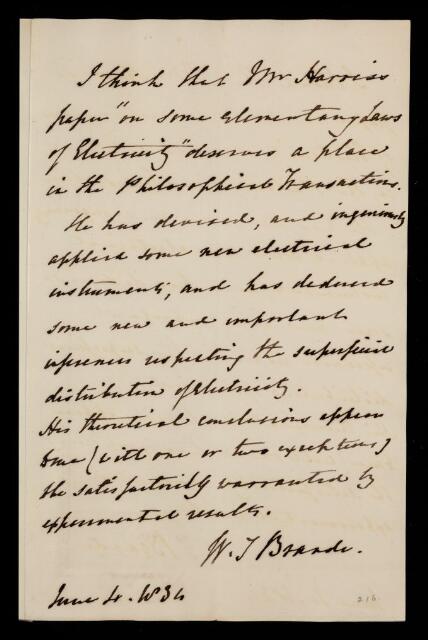 I think that Mr Harris's
paper "on some elementary Laws
of Electricity" deserves a place
in the Philosophical Transactions.
He has devised, and ingeniously
applied some new electrical
instruments, and has deduced
some new and important
inferences respecting the superficial
distribution of electricity.
His theoretical conclusions appear
to me (with one or two exceptions)
to be satisfactorily warranted by
experimental results.
W. T Brande.
June 4. 1834
216